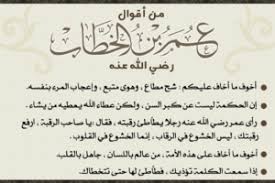 من أقوال
عمر بن الخطاب
رضي الله عنه
• أخوف ما أخاف عليكم : شح مطاع ، وهوى متبع ، وإعجاب المرء بنفسه.
• إن الحكمة ليست عن كبر السن ، ولكن عطاء الله يعطيه من يشاء .
• رأى عمر رضي الله عنه رجلا يطأطئ رقبته ، فقال : يا صاحب الرقبة ، ارفع
رقبتك ، ليس الخشوع في الرقاب ، إنما الخشوع في القلوب.
• أخوف ما أخاف على هذه الأمة ، من عالم باللسان ، جاهل بالقلب.
• إذا سمعت الكلمة تؤذيك ، فطأطئ لها حتى تتخطاك.